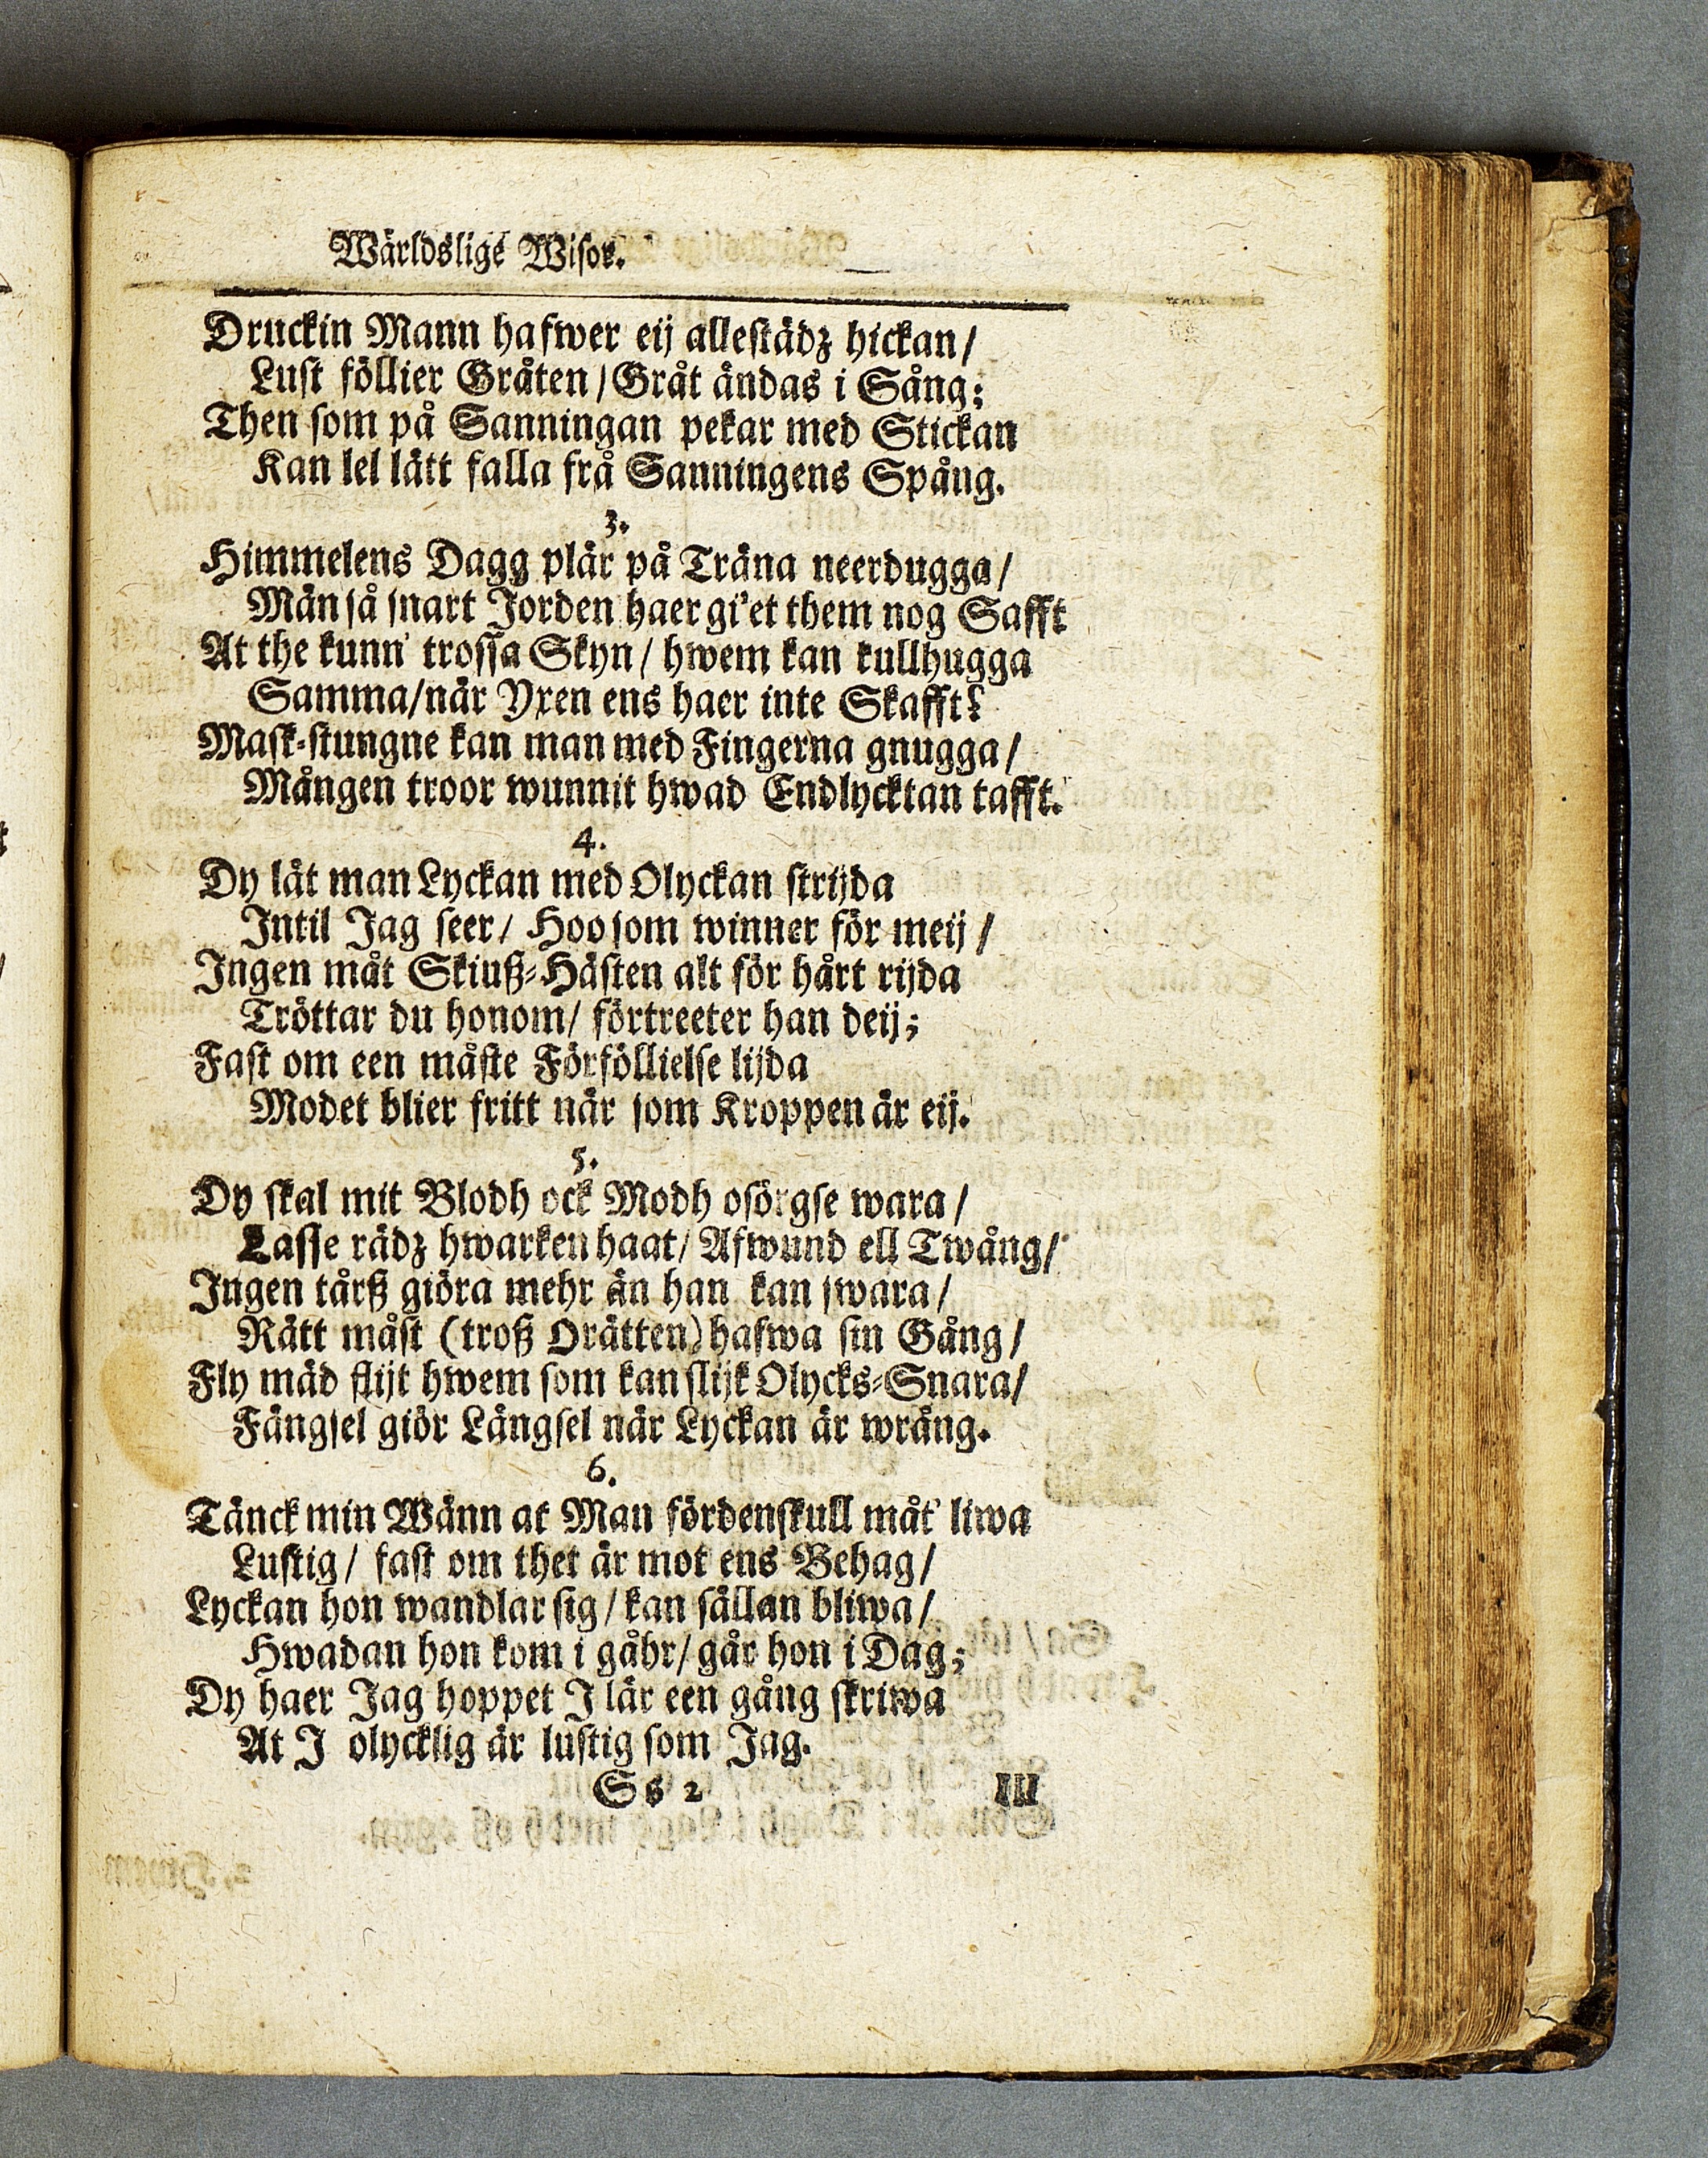 Wärldslige Wisor.
Druckin Mann hafwer eij allestädz hickan/
Lust föllier Gråten/Gråt ändas i Sång;
Then som på Sanningan pekar med Stickan
Kan lel lätt falla frå Sanningens Spång.
3.
Himmelens Dagg plär på Träna neerdugga/
Män så snart Jorden haer gi'et them nog Safft
At the kunn' trossa Skyn/ hwem kan kullhugga
Samma/när Yxen ens haer inte Skafft?
Mask-stungne kan man med Fingerna gnugga/
Mången troor wunnit hwad Endlycktan tafft.
4.
Dy låt man Lyckan med Olyckan strijda
Intil Jag seer/ Hoo som winner för meij/
Ingen måt Skiuß-Hästen alt för hårt rijda
Tröttar du honom/ förtreeter han deij;
Fast om een måste Förföllielse lijda
Modet blier fritt när som Kroppen är eij.
5.
Dy skal mit Blodh ock Modh osörgse wara/
Lasse rädz hwarken haat/ Afwund ell Twång/
Ingen tårß giöra mehr än han kan swara/
Rätt måst (troß Orätten) hafwa sin Gång/
Fly mäd flijt hwem som kan slijk Olycks-Snara/
Fängsel giör Längsel när Lyckan är wrång.
6.
Tänck min Wänn at Man fördenskull måt' liwa
Lustig/ fast om thet är mot ens Behag/
Lyckan hon wandlar sig/ kan sällan bliwa/
Hwadan hon kom i gåhr/ går hon i Dag;
Dy haer Jag hoppet I lär een gång skriwa
At I olycklig är lustig som Jag.
Ss 2 III